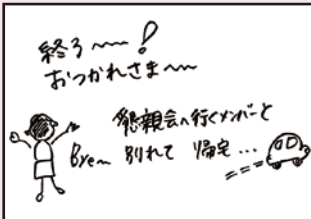 終る〜〜!
おつかれさま〜〜
懇親会へ行くメンバーと
Bye〜 別れて 帰宅...